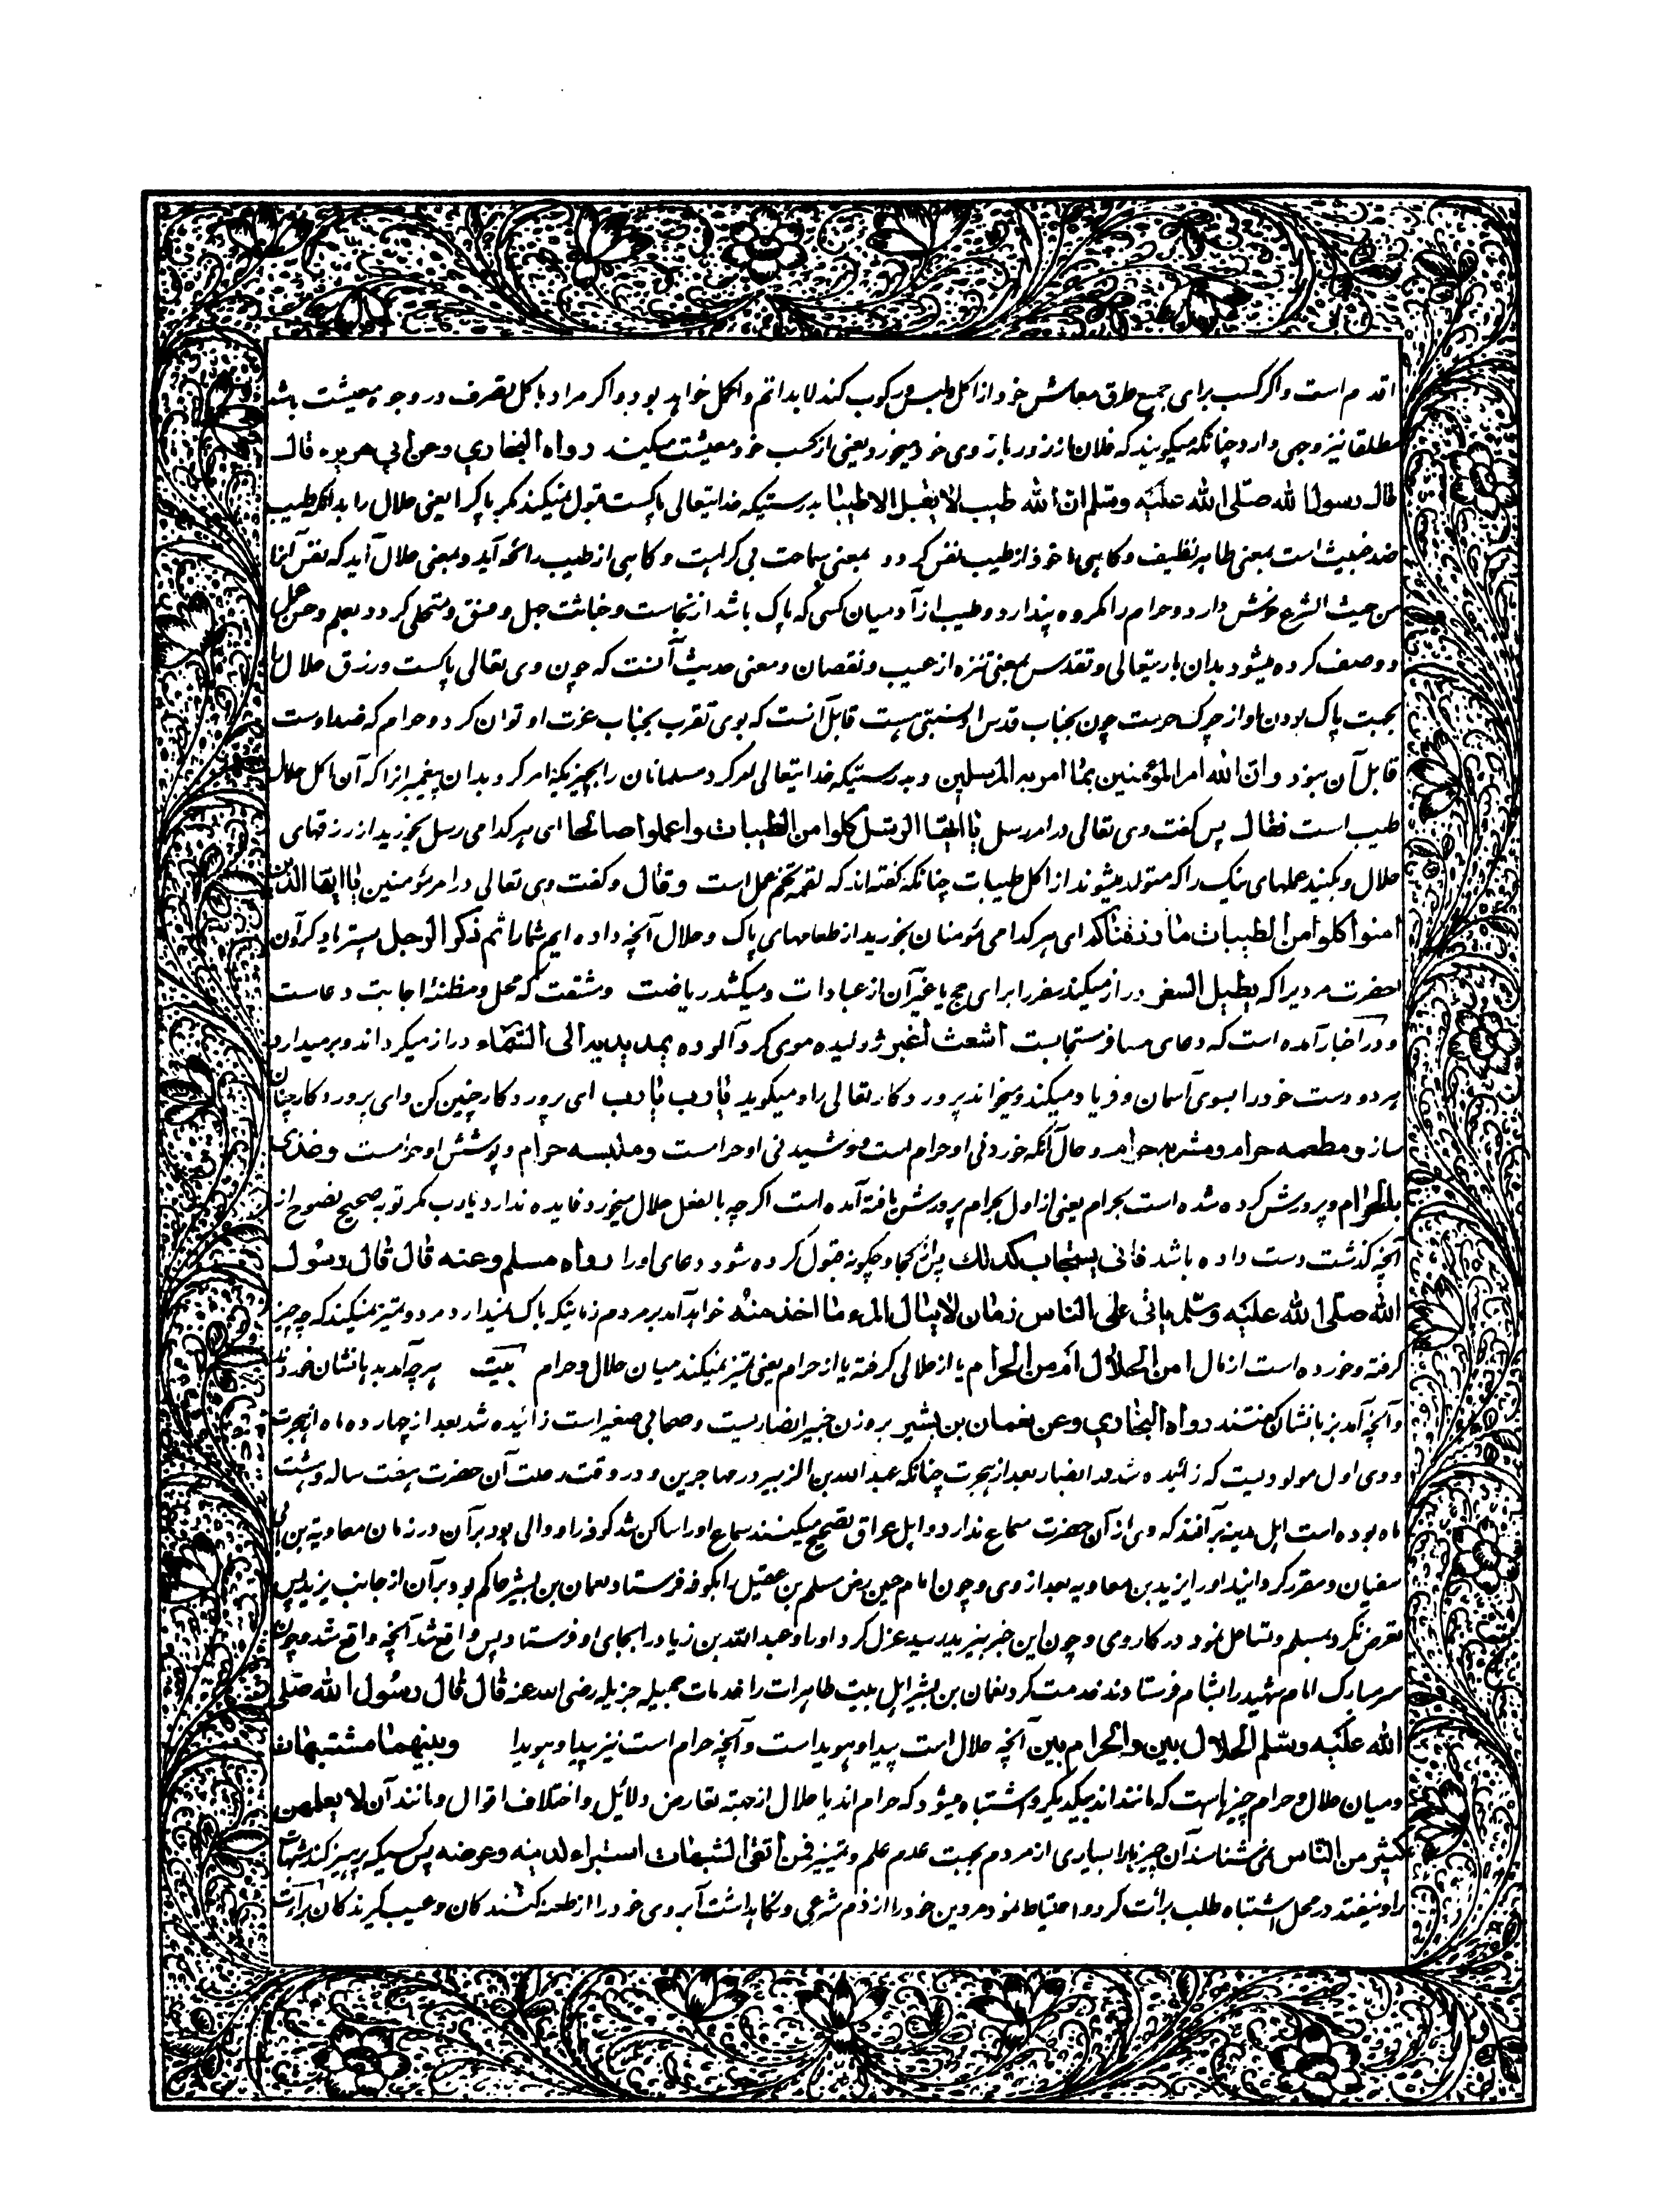 اقدم است و اگر کسب برای جمیع طرق معاش خود از اکل و لبس و رکوب کند لابد اتم و اکمل خواهد بود و اگر مراد باکل تصرف در وجوه معیشت باشد
مطلقا نیز وجهی دارد چنانکه میگویند که فلان از زور بازوی خود میخورد یعنی از کسب خود معیشت میکند رواه البخاري وعن ابي هريره قال
قال رسول الله صلى الله عليه وسلم ان الله طيب لا يقبل الا طيبا بدرستیکه خدایتعالی پاکست قبول نمیکند مگر پاک را یعنی حلال را بدانکه طیب
ضد خبیث است بمعنی طاهر نظیف و گاهی ماخوذ از طیب نفس گردد بمعنی سماحت بی کراهت و گاهی از طیب رائحه آید و بمعنی حلال آید که نفس آنرا
من حیث الشرع خوش دارد و حرام را مکروه پندارد و طیب از آدمیان کسی که پاک باشد از نجاست و خباثت جهل و فسق و متحلی گردد بعلم و حسن عمل
و وصف کرده میشود بدان باریتعالی و تقدس بمعنی تنزه از عیب و نقصان و معنی حدیث آنست که چون وی تعالی پاکست و رزق حلال را
بجهت پاک بودن او از چرک حرمت چون بجناب قدس او نسبتی هست قابل آنست که بوی تقرب بجناب عزت او توان کرد و حرام که ضد اوست
قابل آن نبود وان الله امر المؤمنين بما امر به المرسلين و بدرستیکه خدایتعالی امر کرد مسلمانان را بچیزیکه امر کرد بدان پیغمبرانرا که آن اکل حلال
طیب است فقال پس گفت وی تعالی در امر رسل يا ايها الرسل كلوا من الطيبات واعملوا صالحا ای هر کدامی رسل بخورید از رزقهای
حلال و بکنید عملهای نیک را که متولد میشوند از اکل طیبات چنانکه گفته اند که لقمه تخم عمل است وقال و گفت وی تعالی در امر مؤمنین يا ايها الذين
امنوا كلوا من الطيبات ما رزقناكم ای هر کدامی مؤمنان بخورید از طعامهای پاک و حلال آنچه داده ایم شما را ثم ذكر الرجل پستر یاد کرد آن
حضرت مردیرا که يطيل السفر دراز میکند سفر را برای حج یا غیر آن از عبادات و میکشد ریاضت و مشقت که محل و مظنهٔ اجابت دعاست
و در اخبار آمده است که دعای مسافر مستجابست اشعث اغبر ژولیده موی گردآلوده يمد يديه الى السماء دراز میگرداند و برمیدارد
هر دو دست خود را بسوی آسمان و فریاد میکند و میخواند پروردگار تعالی را و میگوید يا رب يا رب ای پروردگار چنین کن و ای پروردگار چنان
ساز و مطعمه حرام و مشربه حرام و حال آنکه خوردنی او حرام است و نوشیدنی او حرام است و ملبسه حرام و پوشش او حرامست و غذي
بالحرام و پرورش کرده شده است بحرام یعنی از اول بحرام پرورش یافته آمده است اگرچه بالفعل حلال میخورد فایده ندارد یارب مگر توبه صحیح نصوح از
آنچه گذشت دست داده باشد فاني يستجاب لذلك پس از کجا و چگونه قبول کرده شود دعای او را رواه مسلم وعنه قال قال رسول
الله صلى الله عليه وسلم ياتي على الناس زمان لا يبالي المرء ما اخذ منه خواهد آمد بر مردم زمانیکه باک نمیدارد مرد و تمیز نمیکند که چه چیز
گرفته و خورده است از مال امن الحلال ام من الحرام یا از حلالی گرفته یا از حرام یعنی تمیز نمیکند میان حلال و حرام بیت هر چه آمد بدهانشان خوردند
و آنچه آمد بزبانشان گفتند رواه البخاري وعن نعمان بن بشير بروزن خبیر انصاریست و صحابی صغیر است زائیده شد بعد از چهارده ماه از هجرت
و وی اول مولودیست که زائیده شد مر انصار بعد از هجرت چنانکه عبدالله بن الزبیر در مهاجرین و در وقت رحلت آن حضرت هفت ساله و هشت
ماه بوده است اهل مدینه برآنند که وی از آن حضرت سماع ندارد و اهل عراق تصحیح میکنند سماع او را ساکن شد کوفه را و والی بود بر آن در زمان معاویة بن ابی
سفیان و مقرر گردانید او را یزید بن معاویه بعد از وی و چون امام حسین رض مسلم بن عقیل را بکوفه فرستاد نعمان بن بشیر حاکم بود بر آن از جانب یزید پس
تعرض نکرد بمسلم و تساهل نمود در کار وی و چون این خبر بیزید رسید عزل کرد او را و عبدالله بن زیاد را بجای او فرستاد پس واقع شد آنچه واقع شد و چون
سر مبارک امام شهید را بشام فرستادند خدمت کرد نعمان بن بشیر اهل بیت طاهرات را خدمات جمیله جزیله رضی الله عنه قال قال رسول الله صلى
الله عليه وسلم الحلال بين والحرام بين آنچه حلال است پیدا و هویداست و آنچه حرام است نیز پیدا و هویدا وبينهما مشتبهات
و میان حلال و حرام چیزهاست که مانند اند بیکدیگر و اشتباه میشود که حرام اند یا حلال از جهة تعارض دلائل و اختلاف اقوال و مانند آن لا يعلمهن
كثير من الناس نمی شناسد آن چیزها را بسیاری از مردم بجهت عدم علم و تمییز فمن اتقى الشبهات استبراء لدينه وعرضه پس کسیکه پرهیز کند شبهات
را و نیفتد در محل اشتباه طلب برائت کرد و احتیاط نمود مر دین خود را از ذم شرعی و نگاهداشت آبروی خود را از طعنه کنندگان و عیب گیرندگان برائت